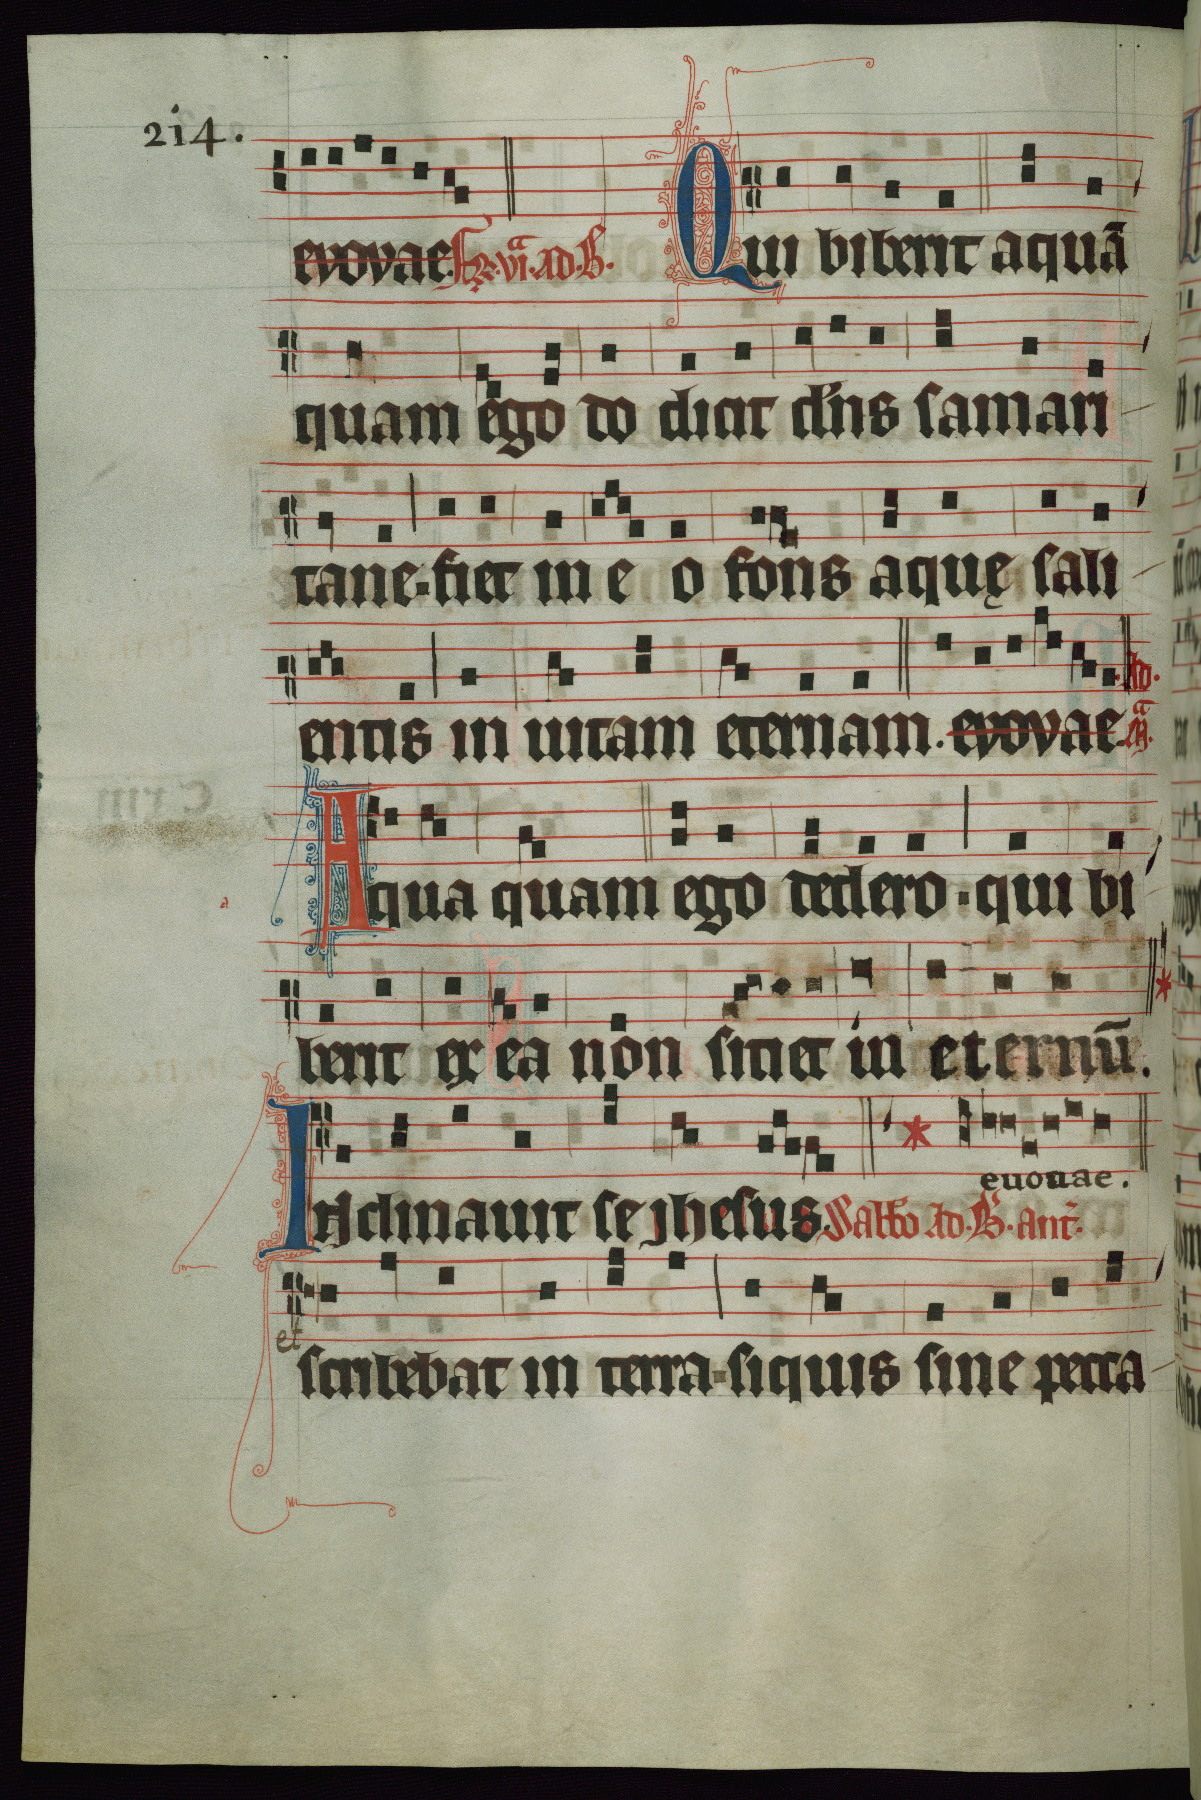 214.
evovae. Fꝫ. vi.ͣ ad. B. Qui biberit aquā
quam ego do dicit dn̄s samari
tane. fiet in e o fons aquę sali
entis in uitam eternam. evovae. Ad. M.ͣ
Aqua quam ego dedero. qui bi
berit ex ea non sitiet in eternū.
* evouae.
Inclinauit se jhesus. Sabb̄o ad. B. ant̄.
et
scribebat in terra. siquis sine pecca